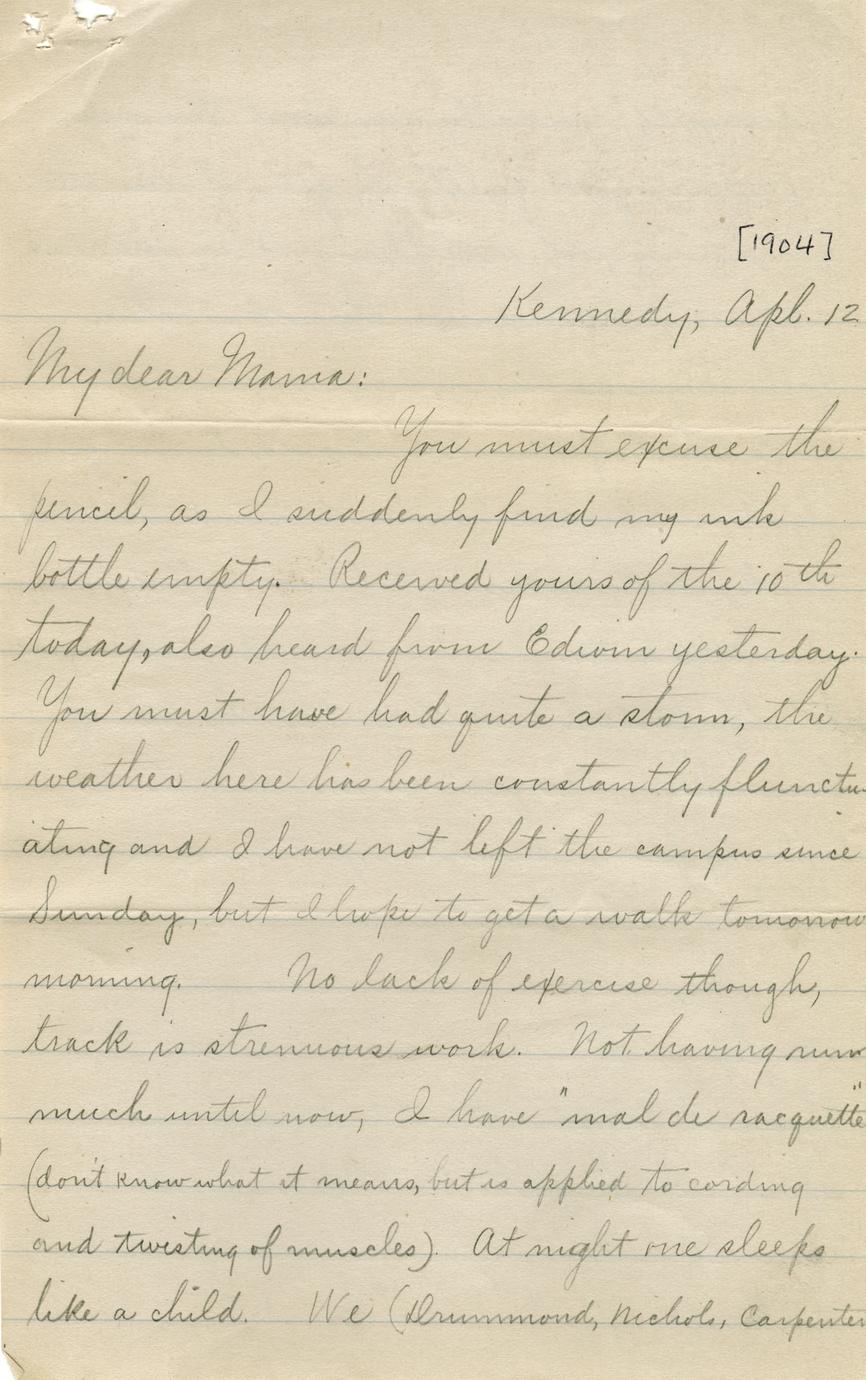 [1904]
Kennedy, Apl. 12
My dear Mama:
You must excuse the
pencil, as I suddenly find my ink
bottle empty. Received yours of the 10th
today, also heard from Edwin yesterday.
You must have had quite a storm, the
weather here has been constantly flunctu-
ating and I have not left the campus since
Sunday, but I hope to get a walk tomorrow
morning. No lack of exercise though,
track is strenuous work. Not having run
much until now, I have "mal de racquette"
(don't know what it means, but is applied to cording
and twisting of muscles). At night one sleeps
like a child. We (Drummond, Nichols, Carpenter